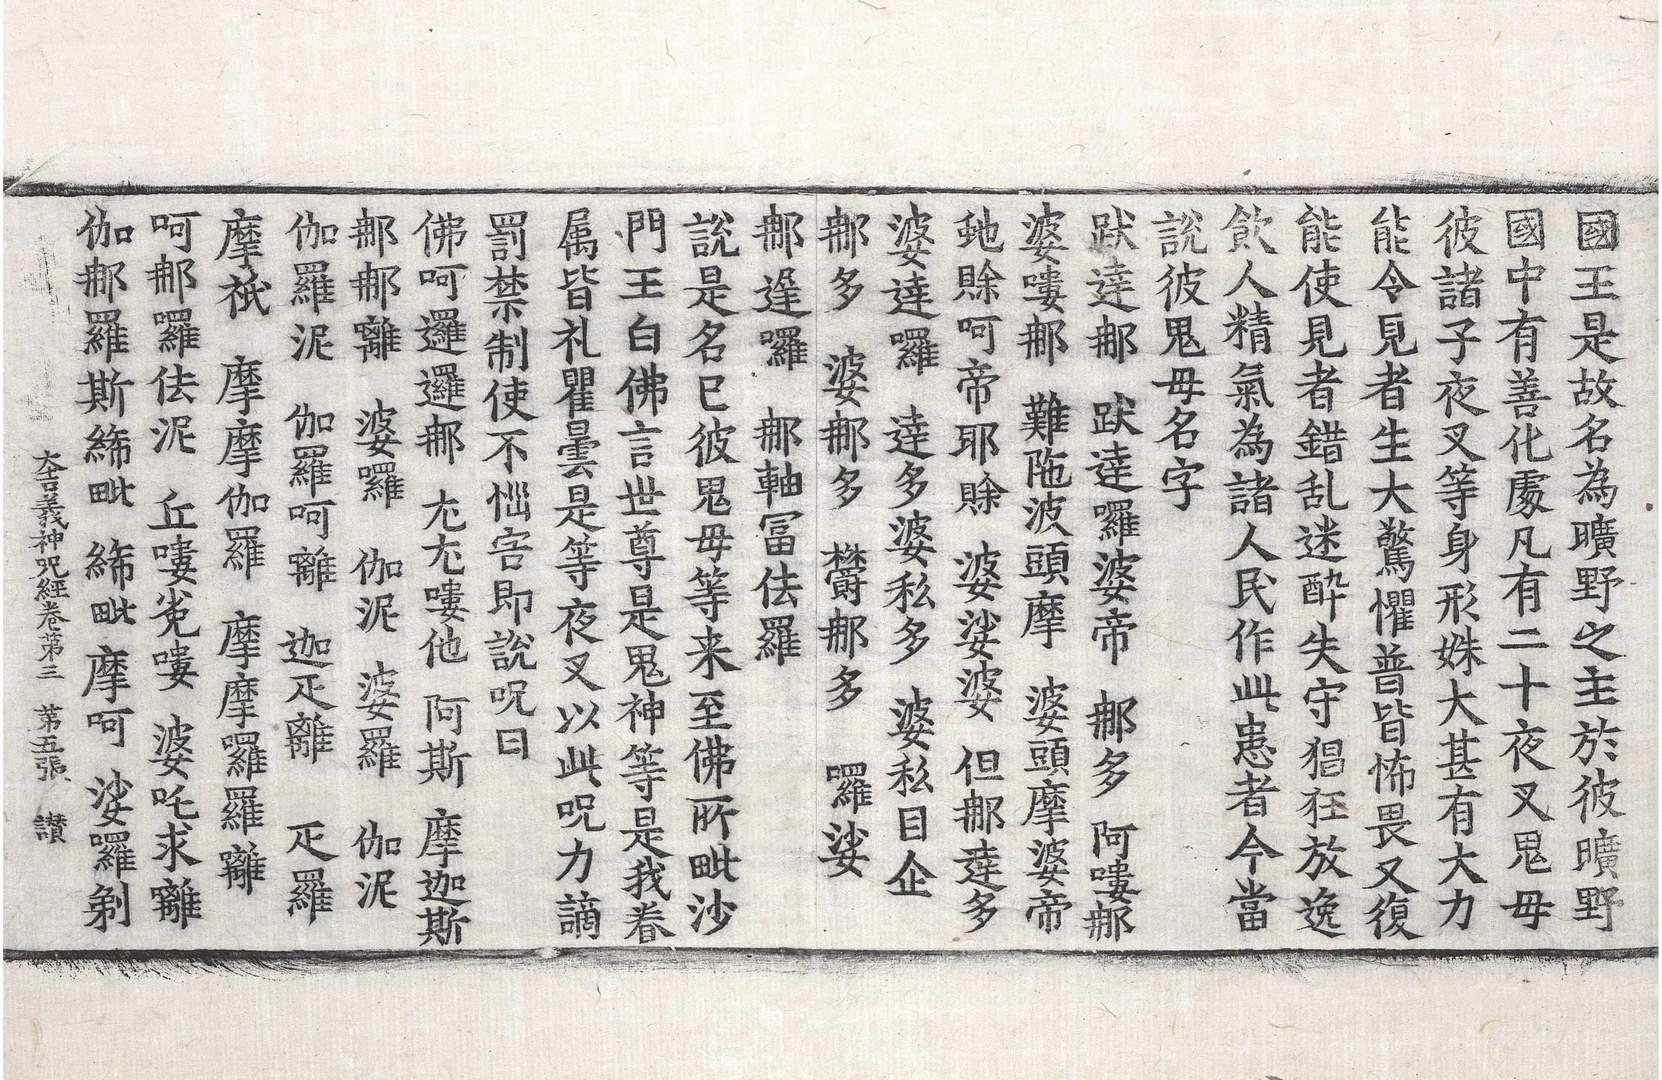 國王是故名為曠野之主於彼曠野
國中有善化處凡有二十夜叉鬼毋
彼諸子夜叉等身形姝大甚有大力
能令見者生大驚懼普皆怖畏又復
能使見者錯乱迷醉失守猖狂放逸
飲人精氣為諸人民作此患者今當
說彼鬼毋名字
跋達那 跋達囉婆帝 那多 阿嘍那
婆嘍那 難陁波頭摩 婆頭摩婆帝
虵賒呵帝耶賒 婆娑婆 但那達多
婆達囉 達多婆私多 婆私目企
那多 婆那多 欝那多 囉娑
那逞囉 那軸冨佉羅
說是名已彼鬼毋等来至佛所毗沙
門王白佛言世尊是鬼神等是我眷
属皆礼瞿曇是等夜叉以此呪力謫
罰禁制使不惱害即說呪曰
佛呵邏邏那 尣尣嘍他 阿斯 摩迦斯
那那離 婆囉 伽泥 婆羅 伽泥
伽羅泥 伽羅呵離 迦疋離 疋羅
摩祇 摩摩伽羅 摩摩囉羅離
呵那囉佉泥 丘嘍 嘍 婆吒求離
伽那羅斯締毗 締毗摩呵 娑囉剃
大吉義神呪經卷第三 第五張 讃